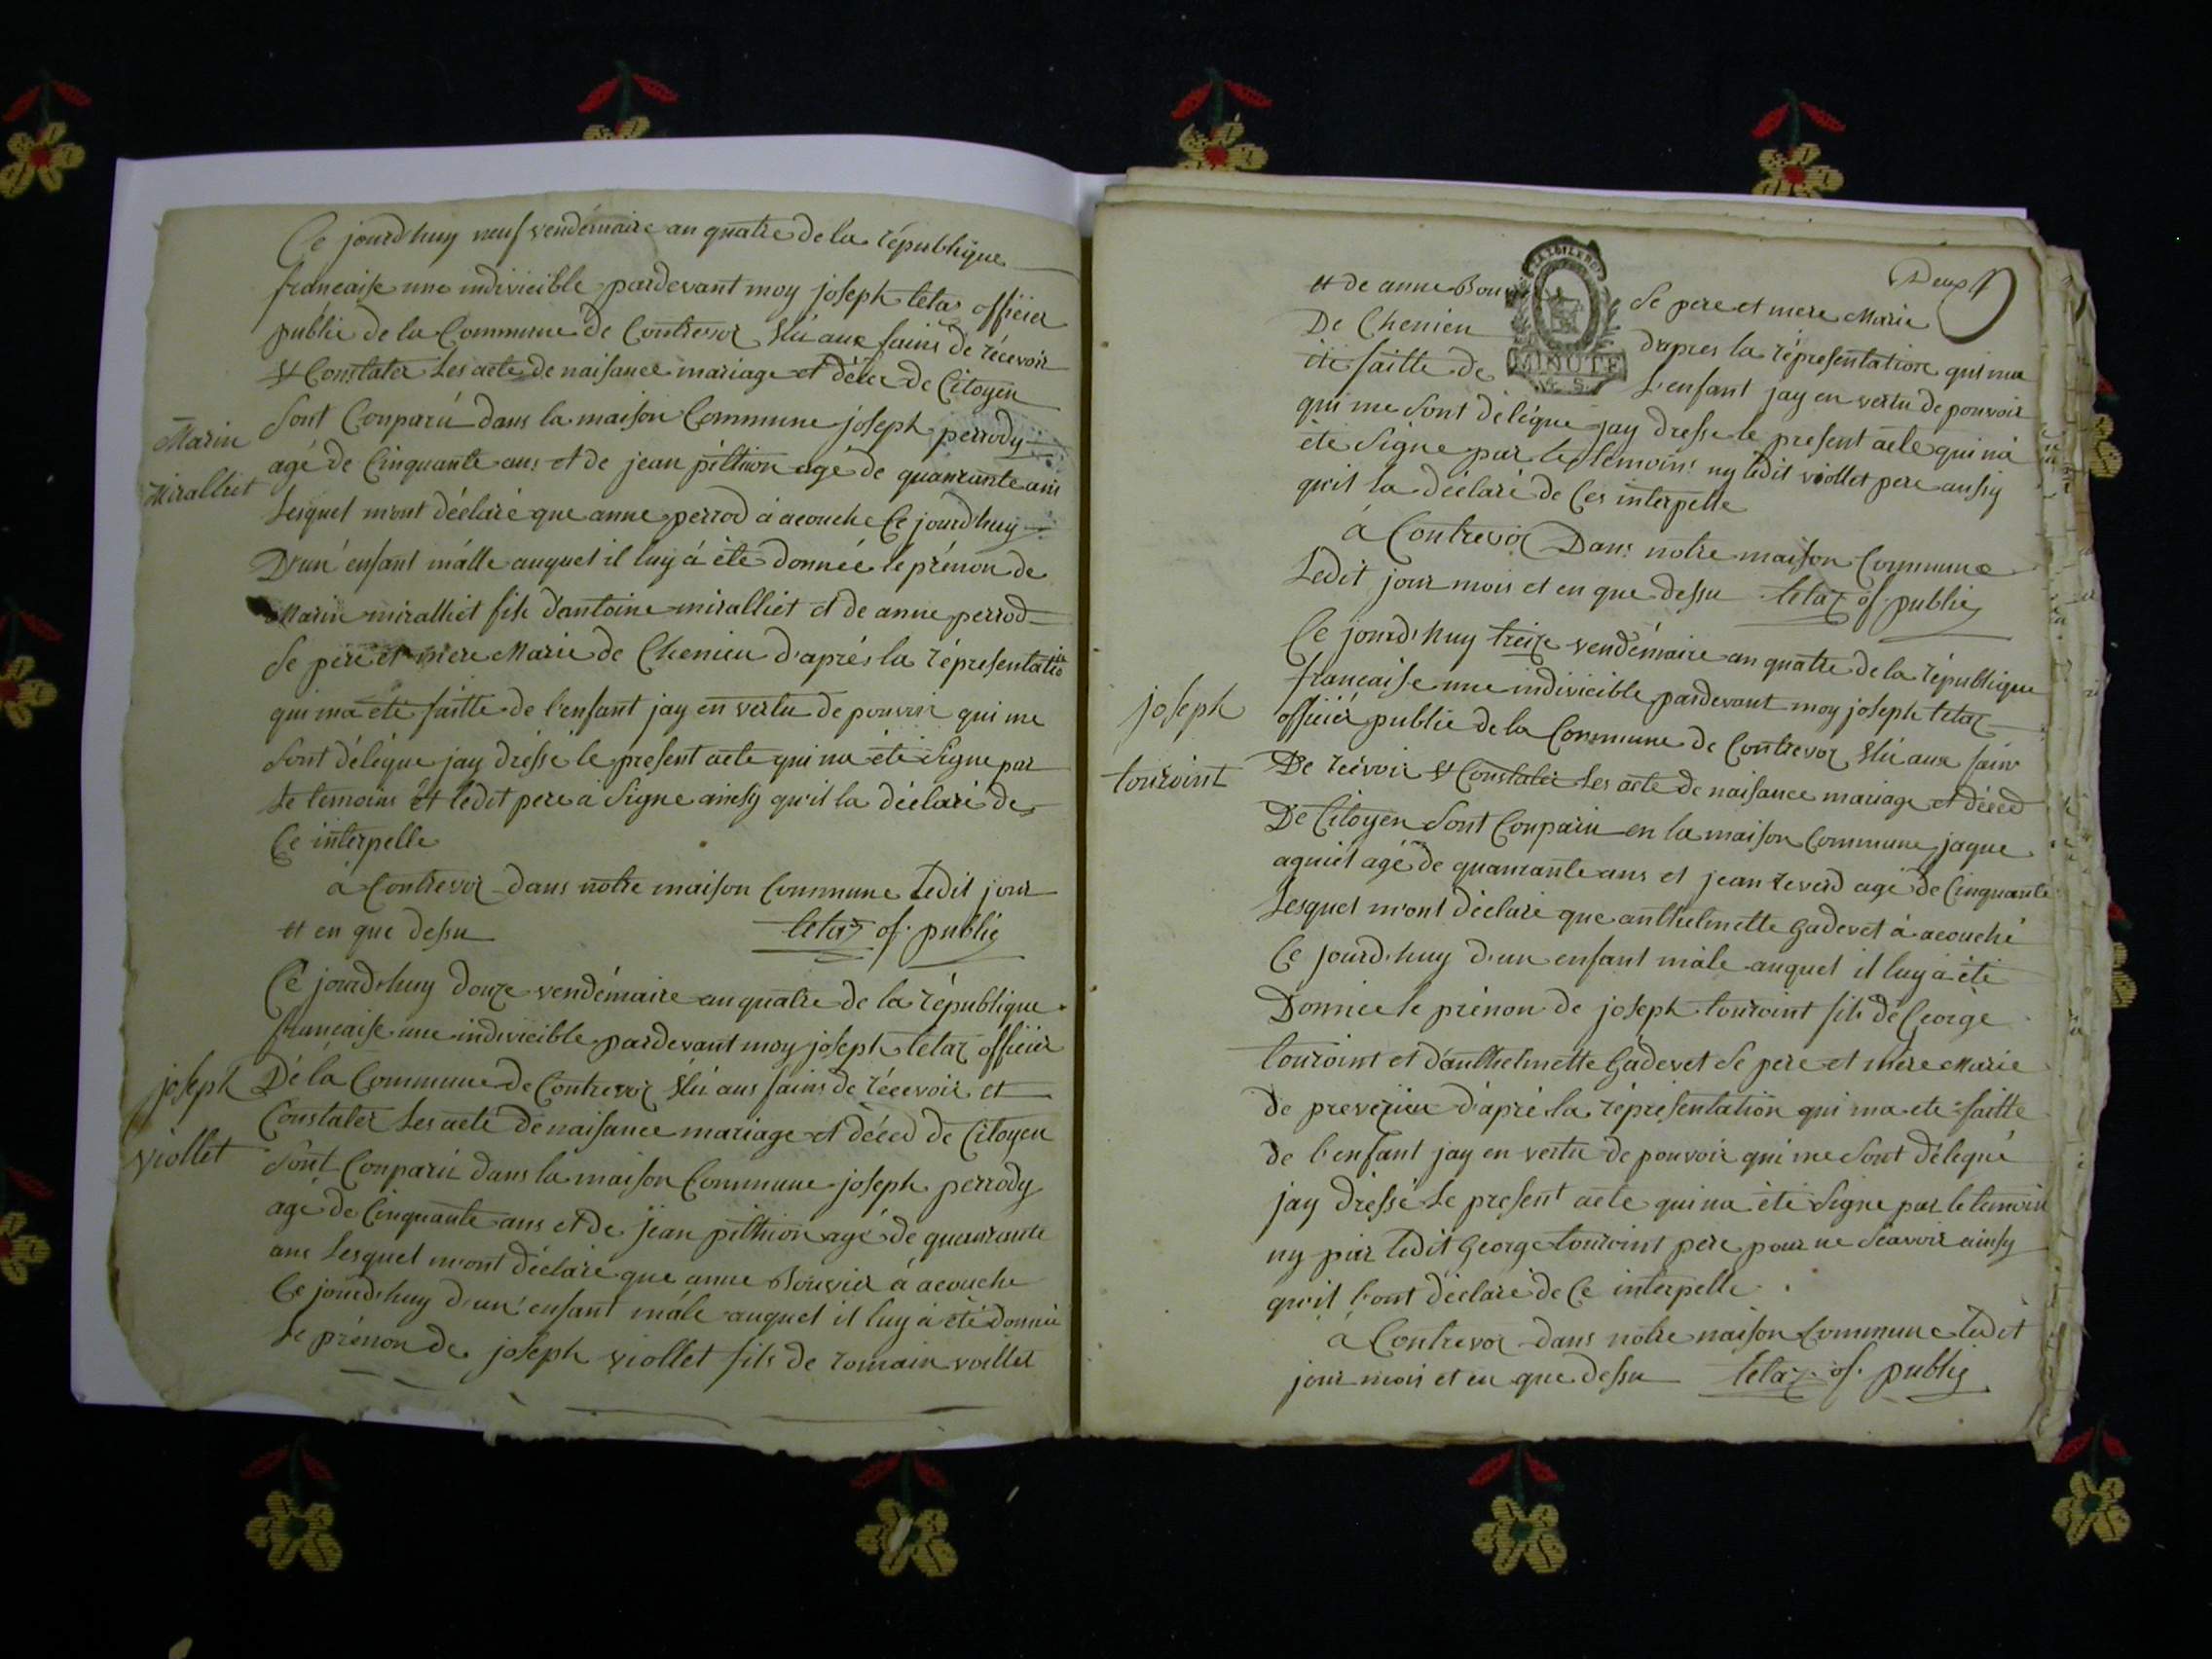 Ce jourd'huy neuf vendémaire an quatre de la république
francaise une indivicible pardevant moy joseph letaz officier
public de la Commune de Contrevoz Elû aux fains de récevoir
et Constater Les acte de naisance mariage et décée de Citoyen
Sont Conparü dans la maison Commune joseph perrody
Marin
agé de Cinquante ans et de jean pilthion agé de quanrante ans
miralliet
Lesquel mont déclaré que anne perrod à acouche Ce jourd'huy
D'un enfant málle auquel il luy à été donnée le prénon de
Marin miralliet fils d'antoine miralliet et de anne perrod
Se pere et mere Marie de Chenieu d'aprés la réprésentation
qui ma été faitte de l'enfant jay en vertu de pouvoir qui me
Sont délégue jay dréssé le present acte qui na été Signe par
Le temoins et ledit pere à Signe ainsy qu'il la déclaré de
Ce interpelle
à Contrevoz dans notre maison Commune Ledit jour
et en que dessu letaz of. public
Ce jourd'huy douze vendémaire an quatre de la république
francaise une indivicible pardevant moy joseph letaz officier
joseph
Dé la Commune de Contrevoz Elû aus fains de récevoir et
Constater Les acte de naisance mariage et décéd de Citoyen
viollet
Sont Conparü dans la maison Commune joseph perrody
agé de Cinquante ans et de jean pilthion agé de quanrante
ans Lesquel m'ont déclaré que anne Bouvier à acouche
Ce jourd'huy d'un enfant mále auquel il luy à été donnée
Le prénon de joseph viollet fils de romain voillet
Deux
et de anne Bou Se pere et mere Marie
De Chenieu d'apres la répresentation qui ma
été faitte de L'enfant jay en vertu de pouvoir
MINUTE
qui me Sont délégue jay dresse le present acte qui na
été Signe par le temoins ny ledit viollet pere ausy
qu'il la déclaré de Ces interpelle
à Contrevoz Dans notre maison Commune
Ledit jour mois et en que dessu letaz of. public
Ce jourd'huy treize vendémaire an quatre de la république
francaise une indivicible pardevant moy joseph letaz
joseph
officier public de la Commune de Contrevoz Elû aux fains
touroint
De récevoir et Constater Les acte de naisance mariage et décéd
De Citoyen Sont Conparu en la maison Commune jaque
aguiét agé de quanrante ans et jean reverd agé de Cinquante
Lesquel m'ont déclaré que anthelmette Gadevet à acouché
Ce jourd'huy d'un enfant mále auquel il luy à été
Donnée le prénon de joseph touroint fils dé George
touroint et d'anthelmette Gadevet Se pere et mére Marie
de preveyieu d'aprè la réprésentation qui ma eté faitte
de l'enfant jay en vertu de pouvoir qui me Sont délegué
jay dressé Le présent acte qui na été Signe par le temoin
ny par ledit George touroint pere pour ne Scavoir ainsy
qu'il l'ont déclaré de Ce interpelle
à Contrevoz dans notre maison Commune ledit
jour mois et en que dessu letaz of. public